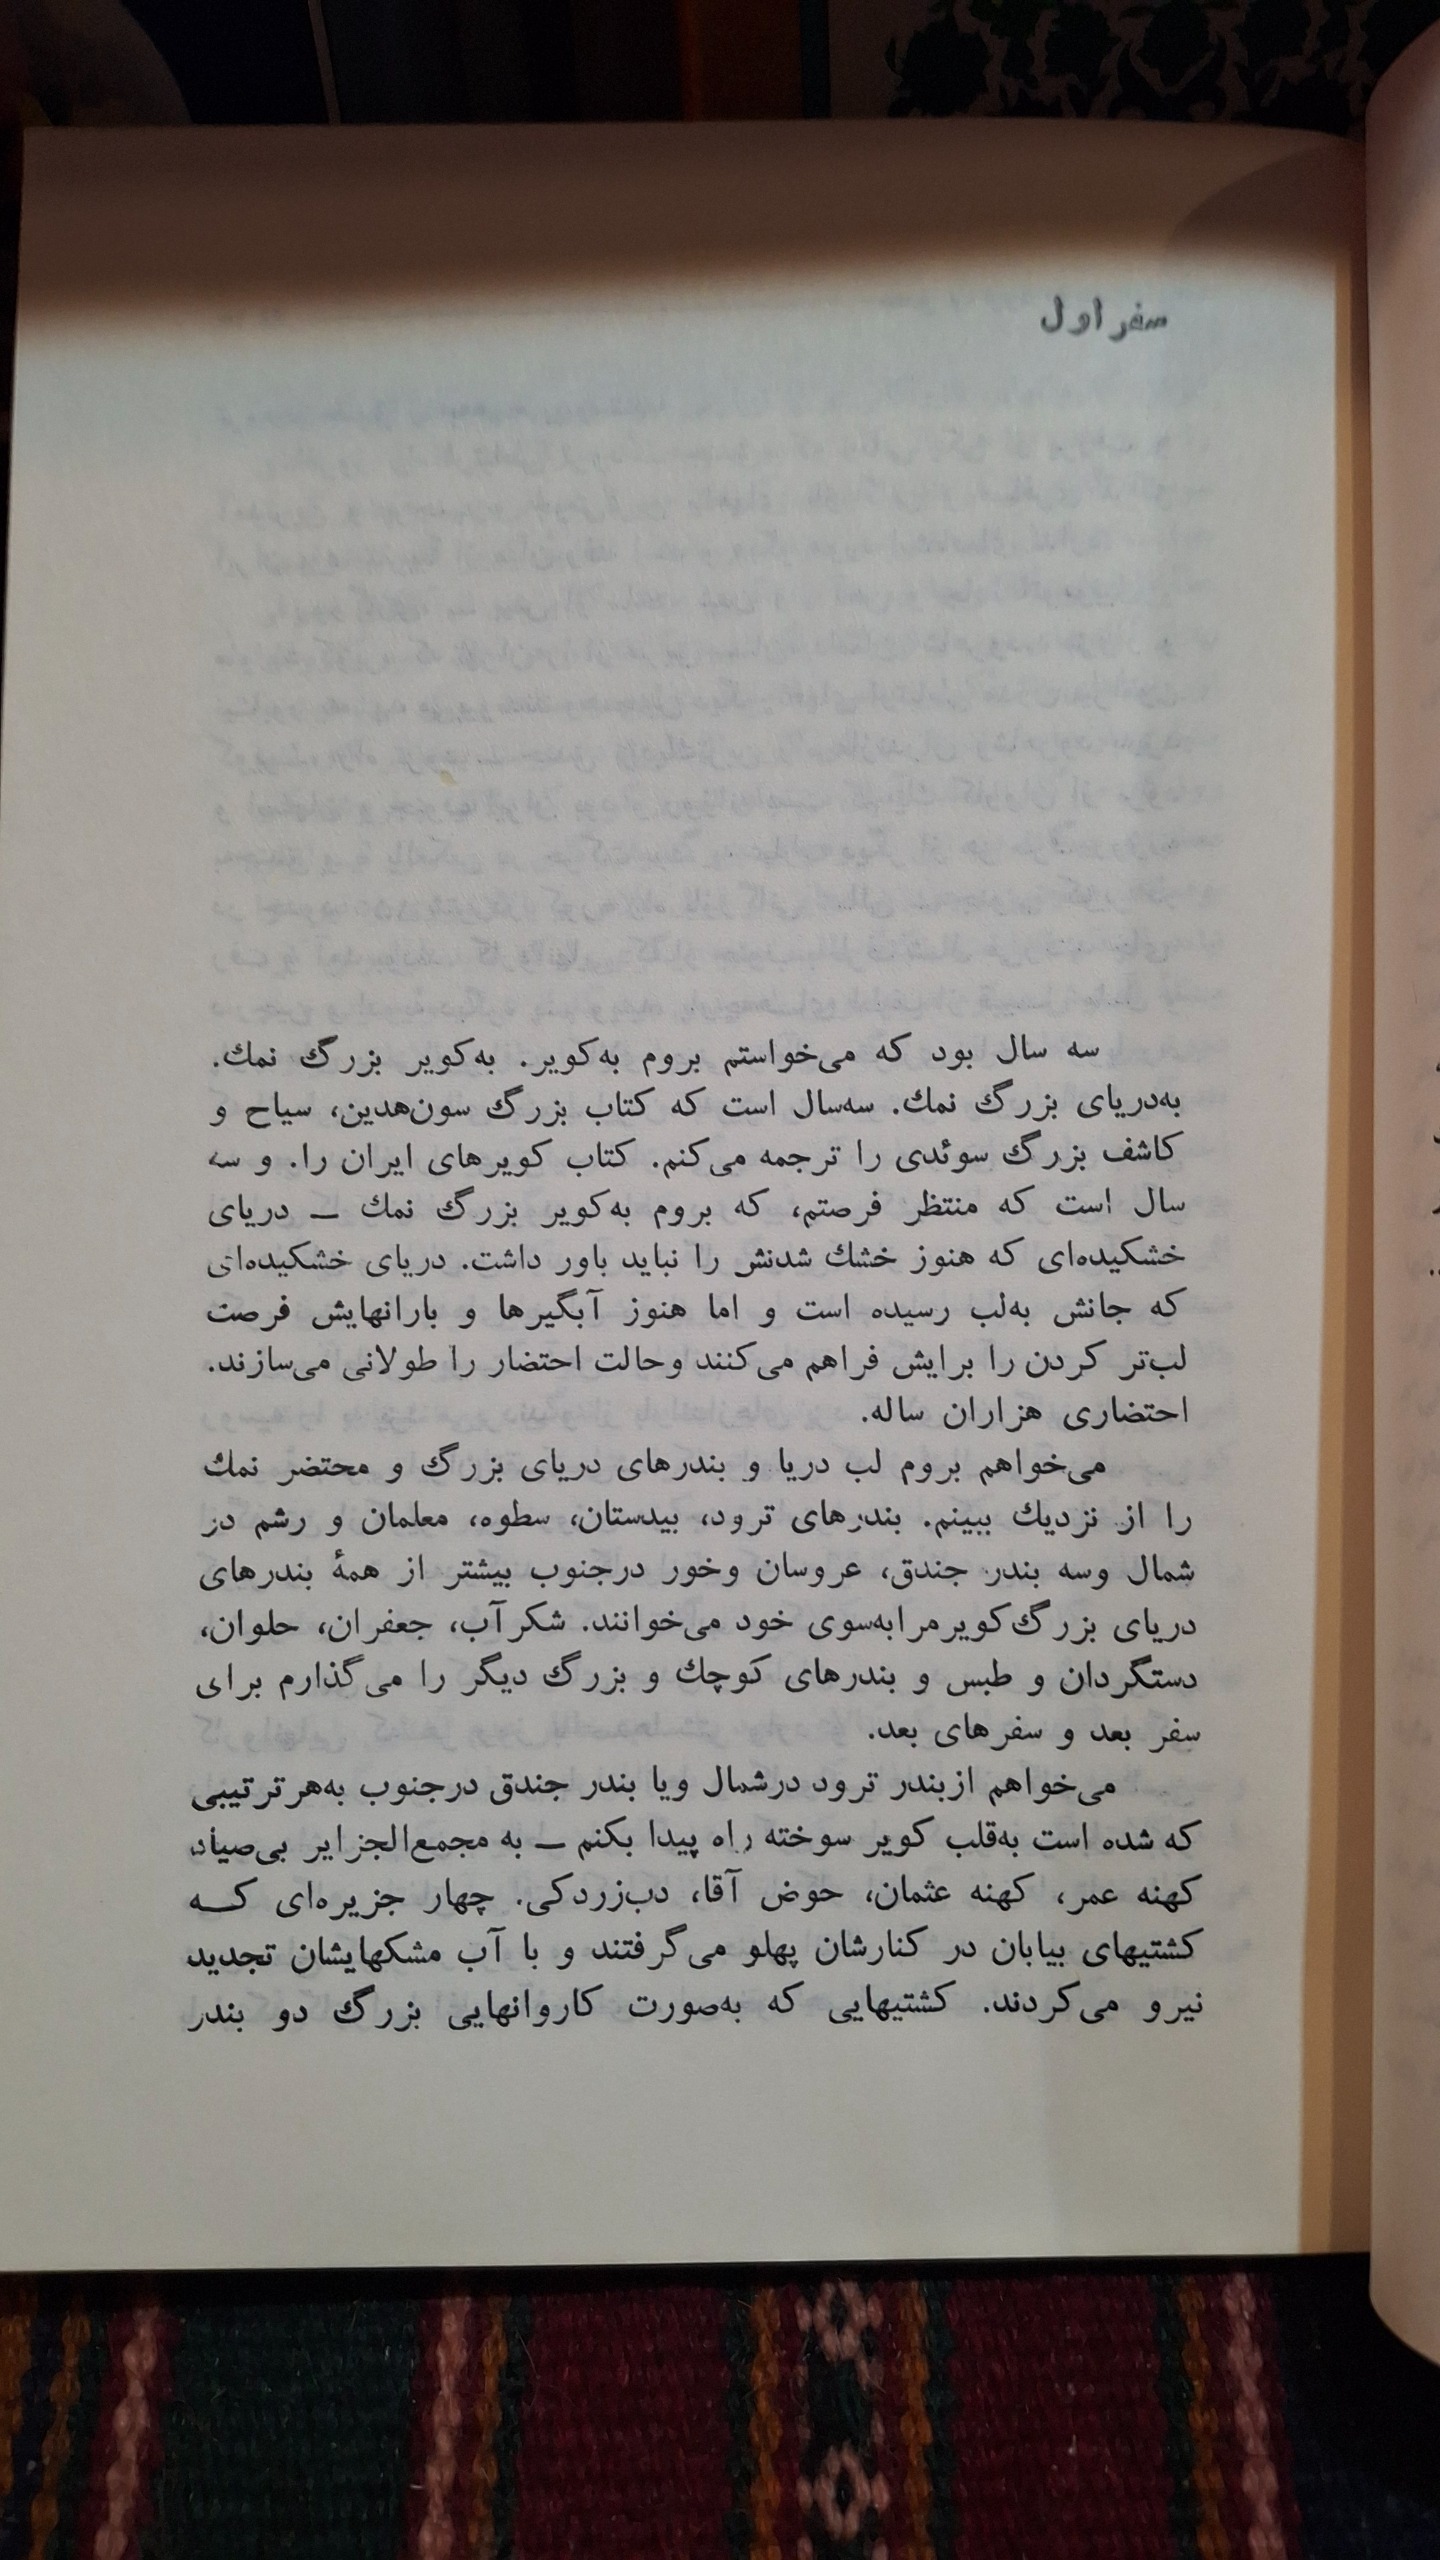 سفر اول
سه سال بود که می‌خواستم بروم به‌کویر. به‌کویر بزرگ نمك.
به‌دریای بزرگ نمك. سه‌سال است که کتاب بزرگ سون‌هدین، سیاح و
کاشف بزرگ سوئدی را ترجمه می‌کنم. کتاب کویرهای ایران را. و سه
سال است که منتظر فرصتم، که بروم به‌کویر بزرگ نمك ــ دریای
خشکیده‌ای که هنوز خشك شدنش را نباید باور داشت. دریای خشکیده‌ای
که جانش به‌لب رسیده است و اما هنوز آبگیرها و بارانهایش فرصت
لب‌تر کردن را برایش فراهم می‌کنند وحالت احتضار را طولانی می‌سازند.
احتضاری هزاران ساله.
می‌خواهم بروم لب دریا و بندرهای دریای بزرگ و محتضر نمك
را از نزدیك ببینم. بندرهای ترود، بیدستان، سطوه، معلمان و رشم در
شمال وسه بندر جندق، عروسان وخور درجنوب بیشتر از همهٔ بندرهای
دریای بزرگ‌کویرمرابه‌سوی خود می‌خوانند. شکرآب، جعفران، حلوان،
دستگردان و طبس و بندرهای کوچك و بزرگ دیگر را می‌گذارم برای
سفر بعد و سفرهای بعد.
می‌خواهم ازبندر ترود درشمال ویا بندر جندق درجنوب به‌هرترتیبی
که شده است به‌قلب کویر سوخته راه پیدا بکنم ــ به مجمع‌الجزایر بی‌صیاد
کهنه عمر، کهنه عثمان، حوض آقا، دب‌زردکی. چهار جزیره‌ای کــه
کشتیهای بیابان در کنارشان پهلو می‌گرفتند و با آب مشکهایشان تجدید
نیرو می‌کردند. کشتیهایی که به‌صورت کاروانهایی بزرگ دو بندر